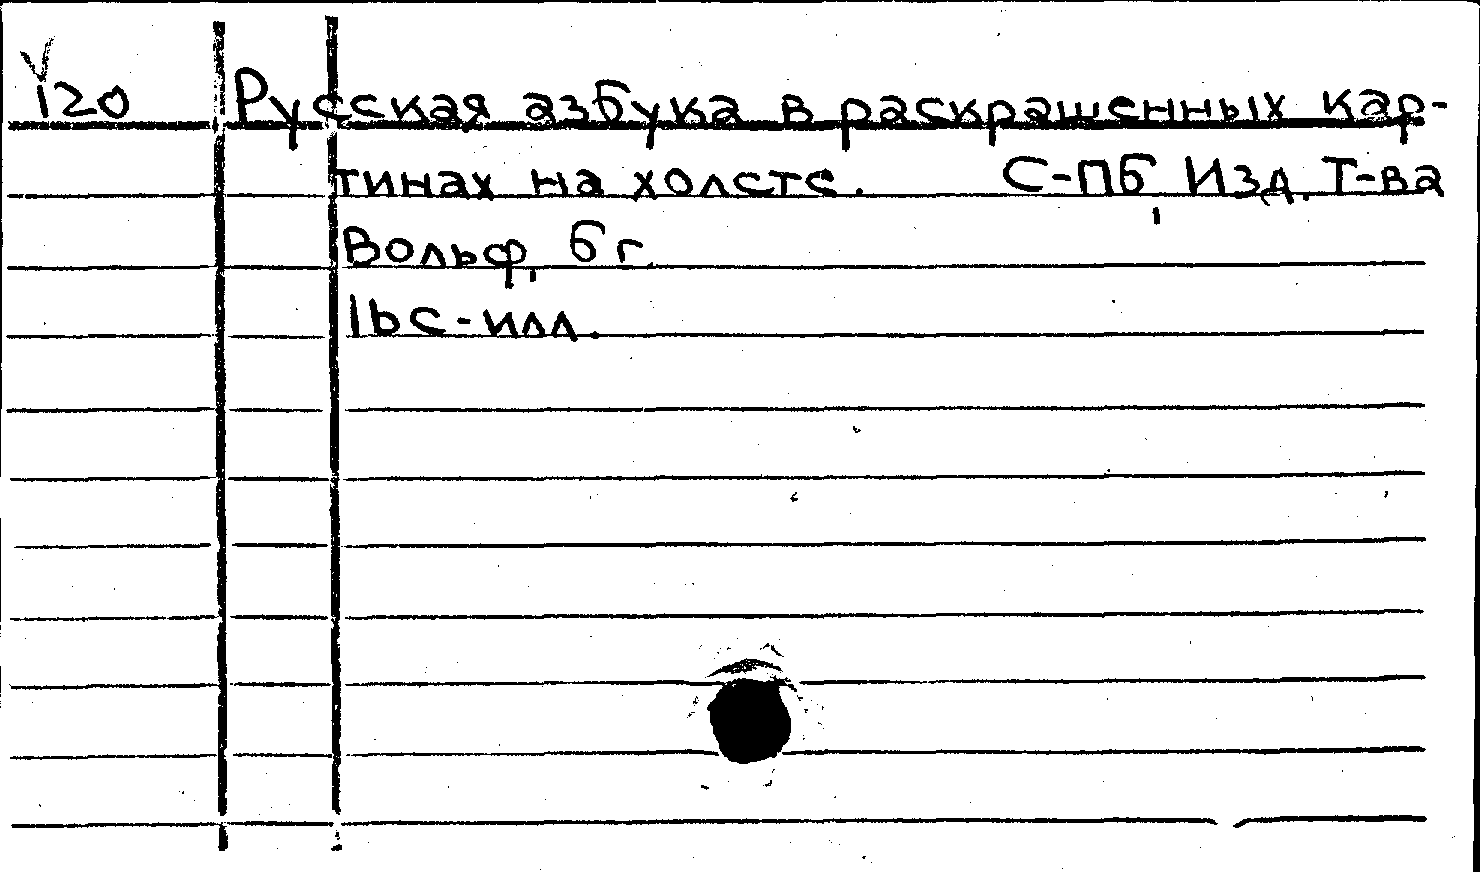 V
120 Русская азбука в раскрашенных кар-
тинах на холсте. С-ПБ, Изд. Т-ва
Вольф, б г.
16 с-илл.